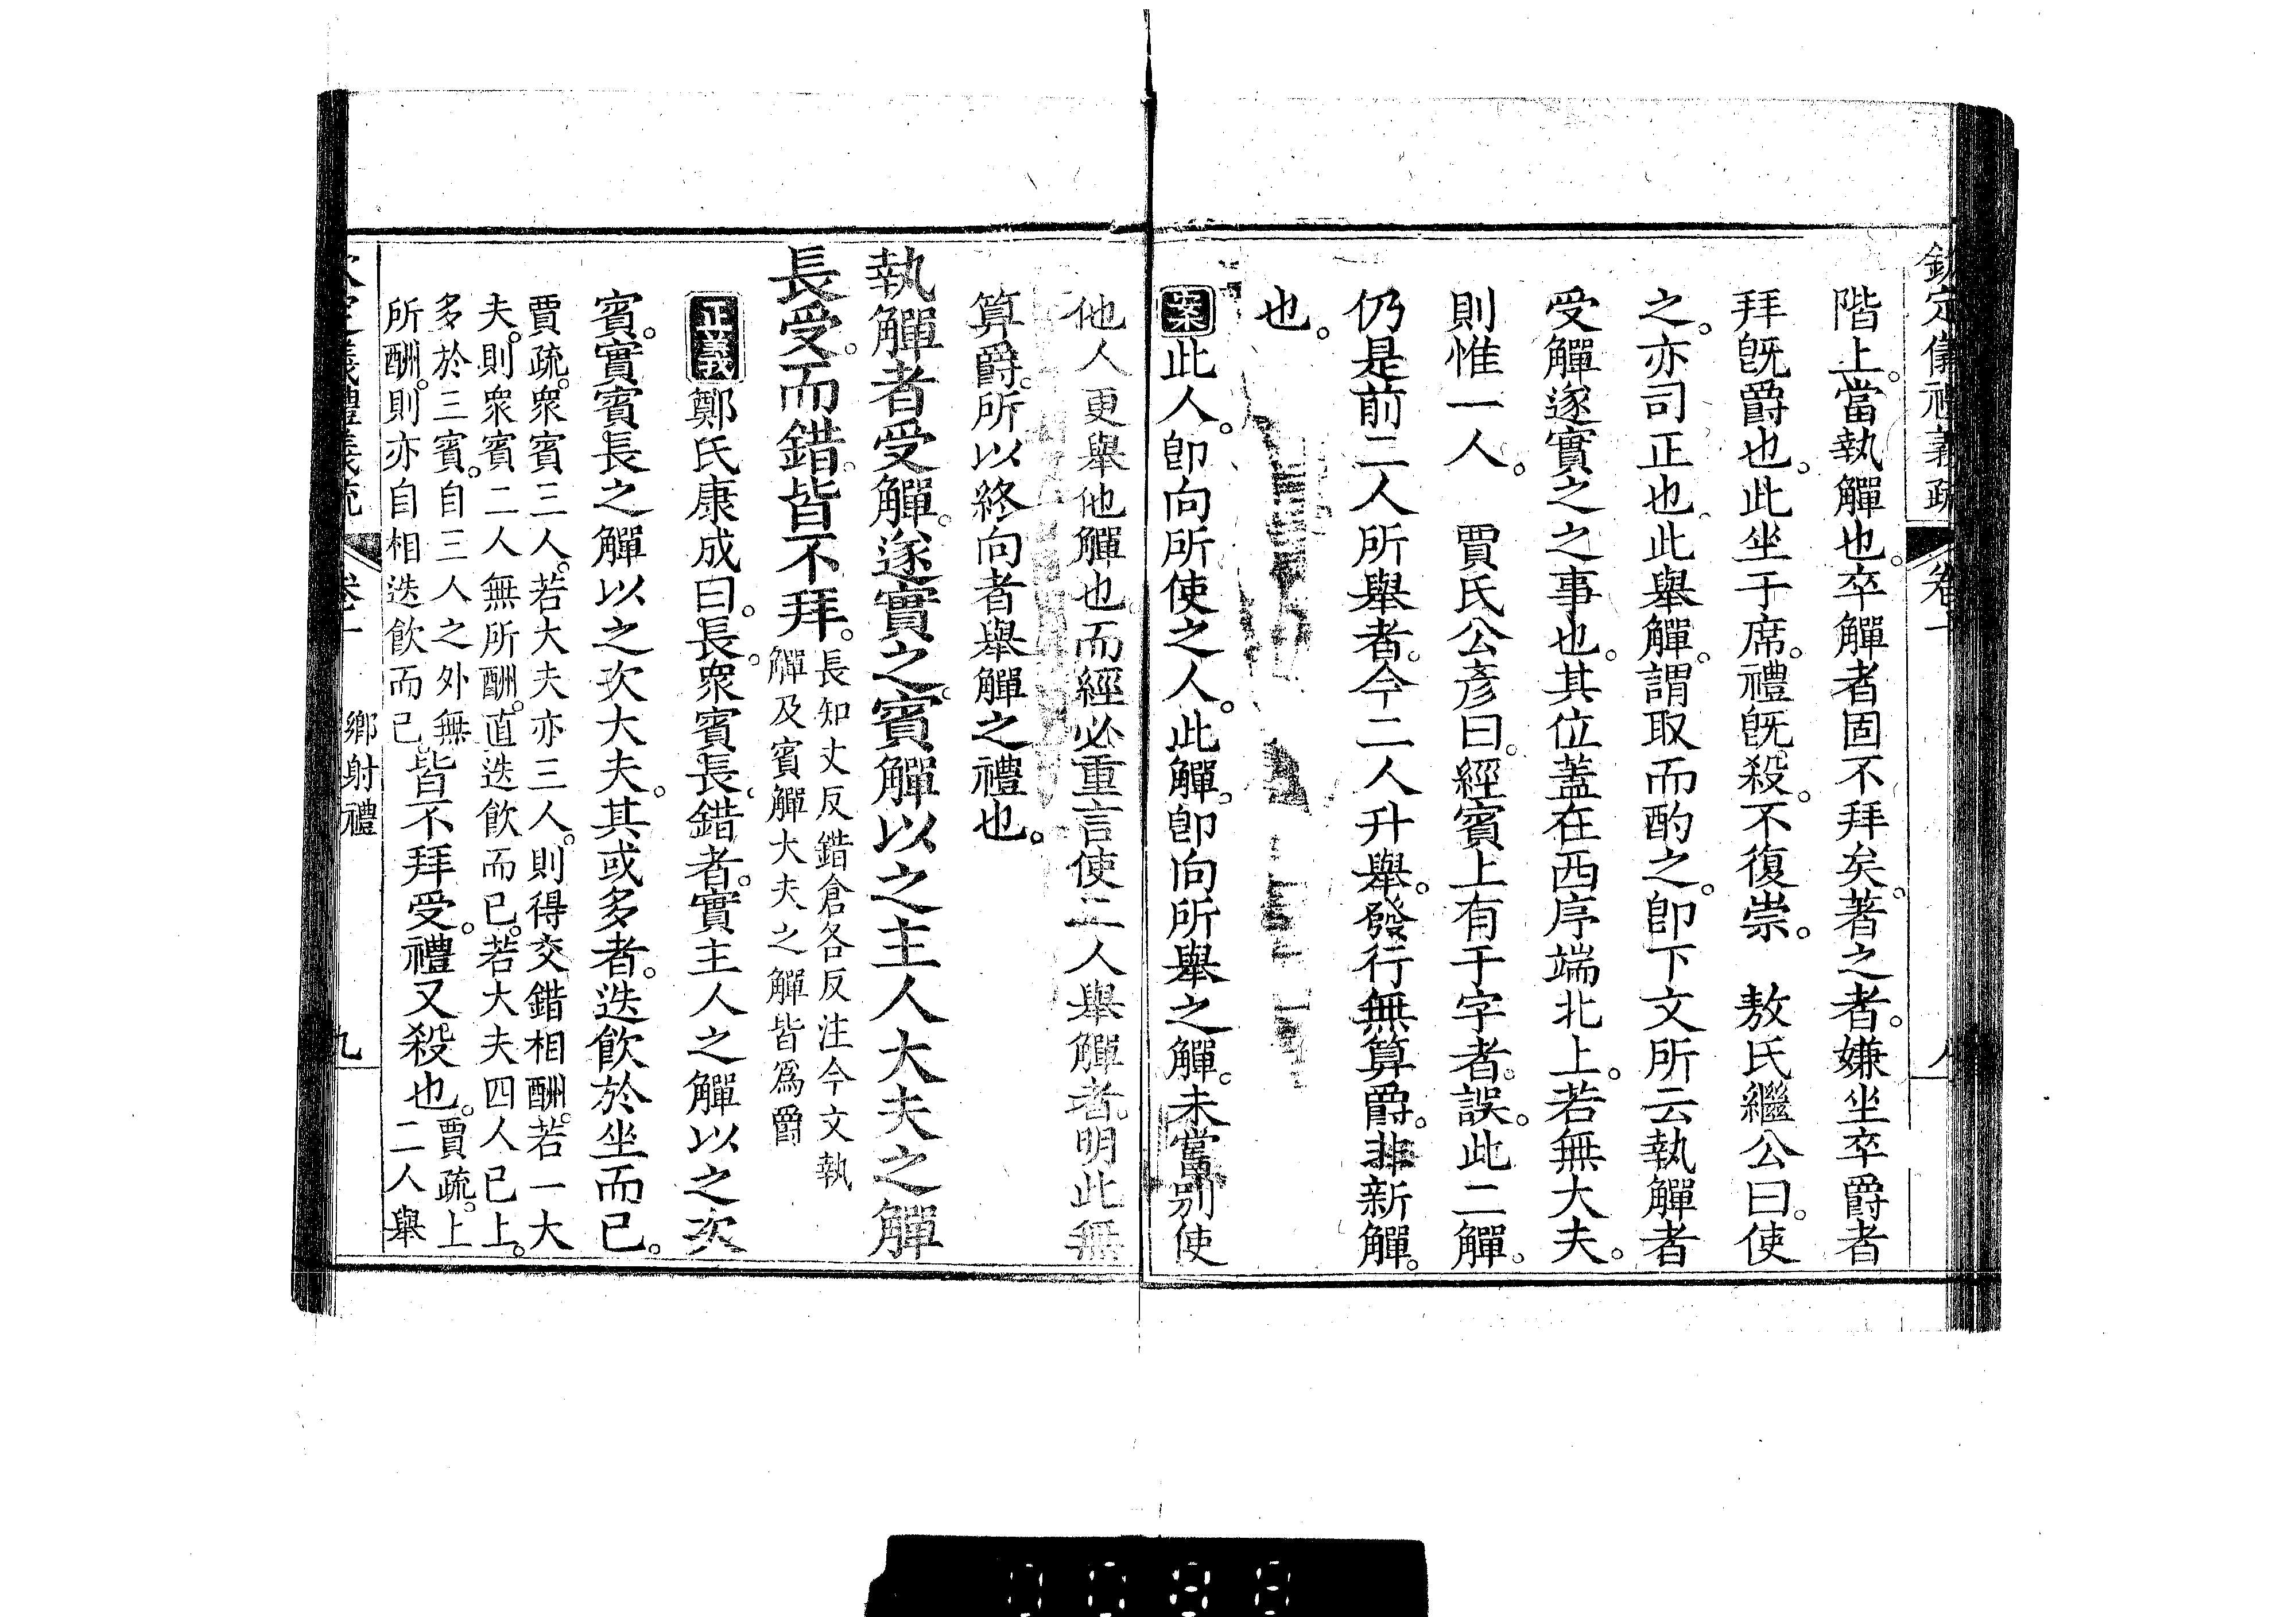 欽定儀禮義疏 卷十 八
階上。當執觶也。卒觶者固不拜矣。著之者。嫌坐卒爵者
拜旣爵也。此坐于席。禮旣殺。不復崇。 敖氏繼公曰。使
之。亦司正也。此舉觶。謂取而酌之。卽下文所云執觶者
受觶遂實之之事也。其位蓋在西序端北上。若無大夫。
則惟一人。 賈氏公彥曰。經賓上有于字者。誤。此二觶。
仍是前二人所舉者。今二人升舉。發行無算爵。非新觶。
也。
案此人。卽向所使之人。此觶。卽向所舉之觶。未嘗別使
他人更舉他觶也。而經必重言使二人舉觶者。明此無
算爵。所以終向者舉觶之禮也。
執觶者受觶。遂實之。賓觶以之主人大夫之觶
長受。而錯。皆不拜。長知丈反錯倉各反注今文執
觶及賓觶大夫之觶皆爲爵
正義鄭氏康成曰。長。衆賓長。錯者。實主人之觶以之次
賓。實賓長之觶以之次大夫。其或多者。迭飮於坐而已。
賈疏。衆賓三人。若大夫亦三人。則得交錯相酬。若一大
夫。則衆賓二人無所酬。直迭飮而已。若大夫四人已上。
多於三賓。自三人之外無
所酬。則亦自相迭飮而已。皆不拜受。禮又殺也。賈疏。上
二人舉
欽定儀禮義疏 卷十 鄉射禮 九